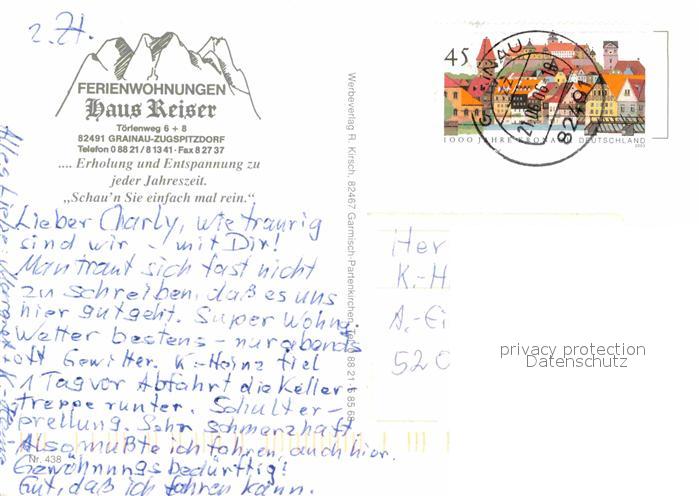 z. Zt.
FERIENWOHNUNGEN
Haus Reiser
Törlenweg 6 + 8
82491 GRAINAU-ZUGSPITZDORF
Telefon 0 88 21 / 8 13 41 · Fax 8 27 37
.... Erholung und Entspannung zu
jeder Jahreszeit.
„Schau'n Sie einfach mal rein.“
Lieber Charly, wie traurig
sind wir - mit Dir!
Man traut sich fast nicht
zu schreiben, daß es uns
hier gutgeht. Super Wohng.
Wetter bestens - nur abends
oft Gewitter. K.-Heinz fiel
1 Tag vor Abfahrt die Keller-
treppe runter. Schulter-
prellung. Sehr schmerzhaft.
Also mußte ich fahren, auch hier.
Gewöhnungsbedürftig!
Gut, daß ich fahren kann.
Alles Liebe
Nr. 438
Werbeverlag R. Kirsch, 82467 Garmisch-Partenkirchen
45
GRAINAU
8249
1000 JAHRE KRONACH DEUTSCHLAND
Her
K.-H
A.-Ei
520
privacy protection
Datenschutz